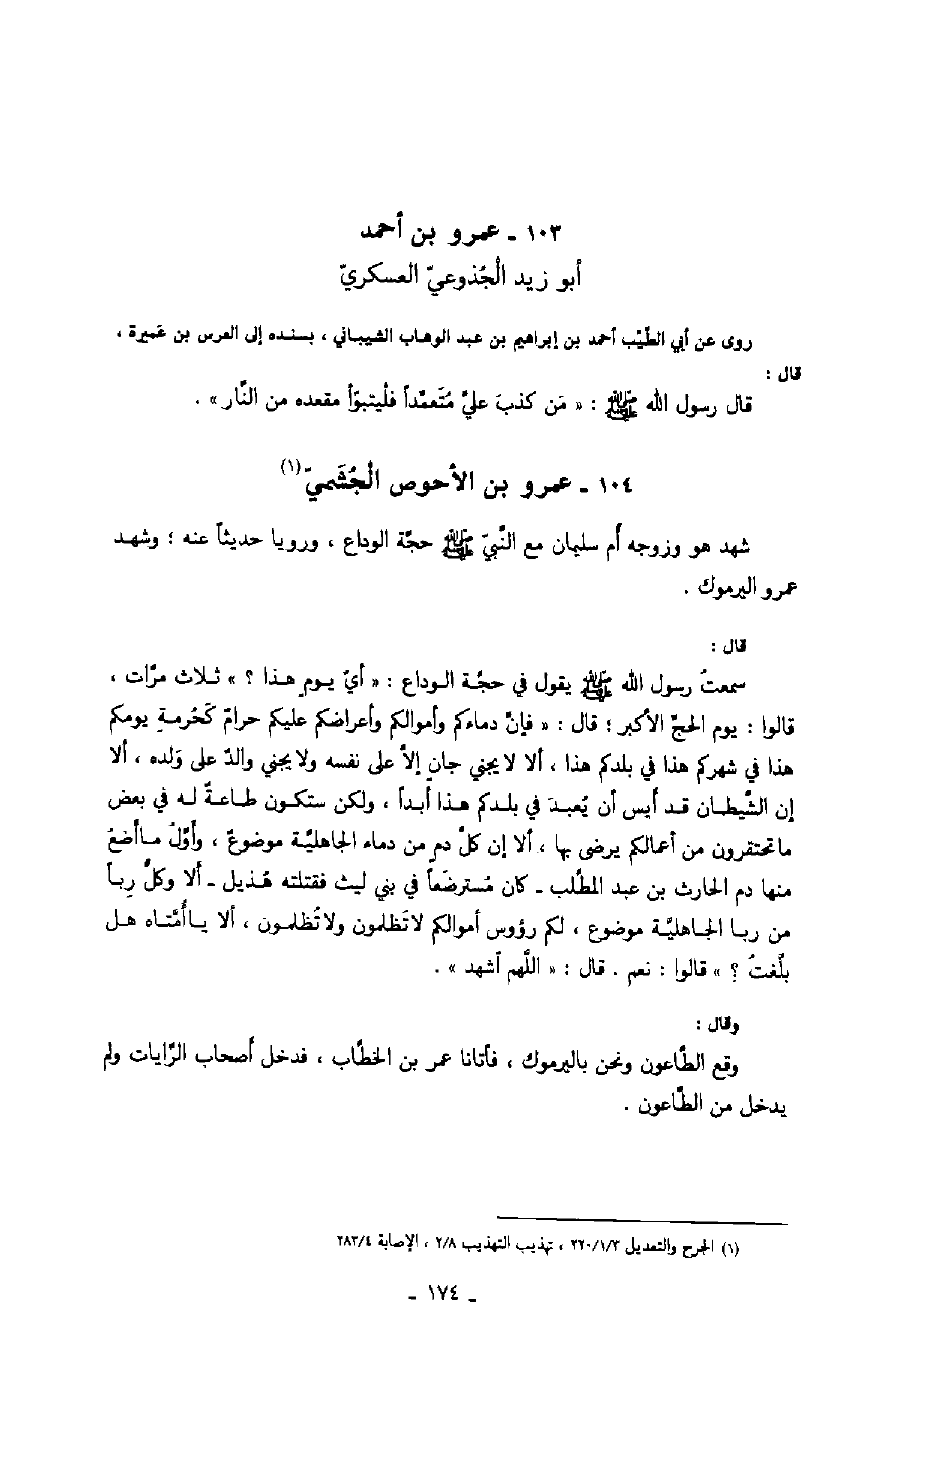 ١٠٣ ـ عمرو بن أحمد
أبو زيد الجُذوعيّ العسكريّ
روى عن أبي الطّيّب أحمد بن إبراهيم بن عبد الوهاب الشيباني ، بسنده إلى العرس بن عَميرة ،
قال :
قال رسول الله ﷺ : « مَن كذبَ عليَّ مُتَعمِّداً فلْيتبوّأ مقعده من النَّار » .
١٠٤ ـ عمرو بن الأحوص الجُشَميّ (١)
شهد هو وزوجه أم سليمان مع النَّبيّ ﷺ حجّة الوداع ، ورويا حديثاً عنه ؛ وشهد
عمرو اليرموك .
قال :
سمعتُ رسول الله ﷺ يقول في حجّة الوداع : « أيّ يوم هذا ؟ » ثلاث مرّات ،
قالوا : يوم الحجّ الأكبر ؛ قال : « فإنّ دماءكم وأموالكم وأعراضكم عليكم حرامٌ كَحُرمةِ يومكم
هذا في شهركم هذا في بلدكم هذا ، ألا لا يجني جانٍ إلاَّ على نفسه ولا يجني والدٌ على وَلده ، ألا
إن الشَّيطان قد أيس أن يُعبدَ في بلدكم هذا أبداً ، ولكن ستكون طاعةٌ له في بعض
ما تحتقرون من أعمالكم يرضى بها ، ألا إن كلَّ دمٍ من دماء الجاهليّة موضوعٌ ، وأوّلُ ما أضعُ
منها دم الحارث بن عبد المطّلب ـ كان مُسترضَعاً في بني ليث فقتلته هُذيل ـ ألا وكلُّ رِباً
من ربا الجاهليَّة موضوع ، لكم رؤوس أموالكم لا تَظلمون ولا تُظلمون ، ألا يا أُمّتاه هل
بلّغتُ ؟ » قالوا : نعم . قال : « اللَّهم اشهد » .
وقال :
وقع الطَّاعون ونحن باليرموك ، فأتانا عمر بن الخطَّاب ، فدخل أصحاب الرَّايات ولم
يدخل من الطَّاعون .
(١) الجرح والتعديل ٢٢٠/١/٣ ، تهذيب التهذيب ٢/٨ ، الإصابة ٢٨٣/٤
ـ ١٧٤ ـ